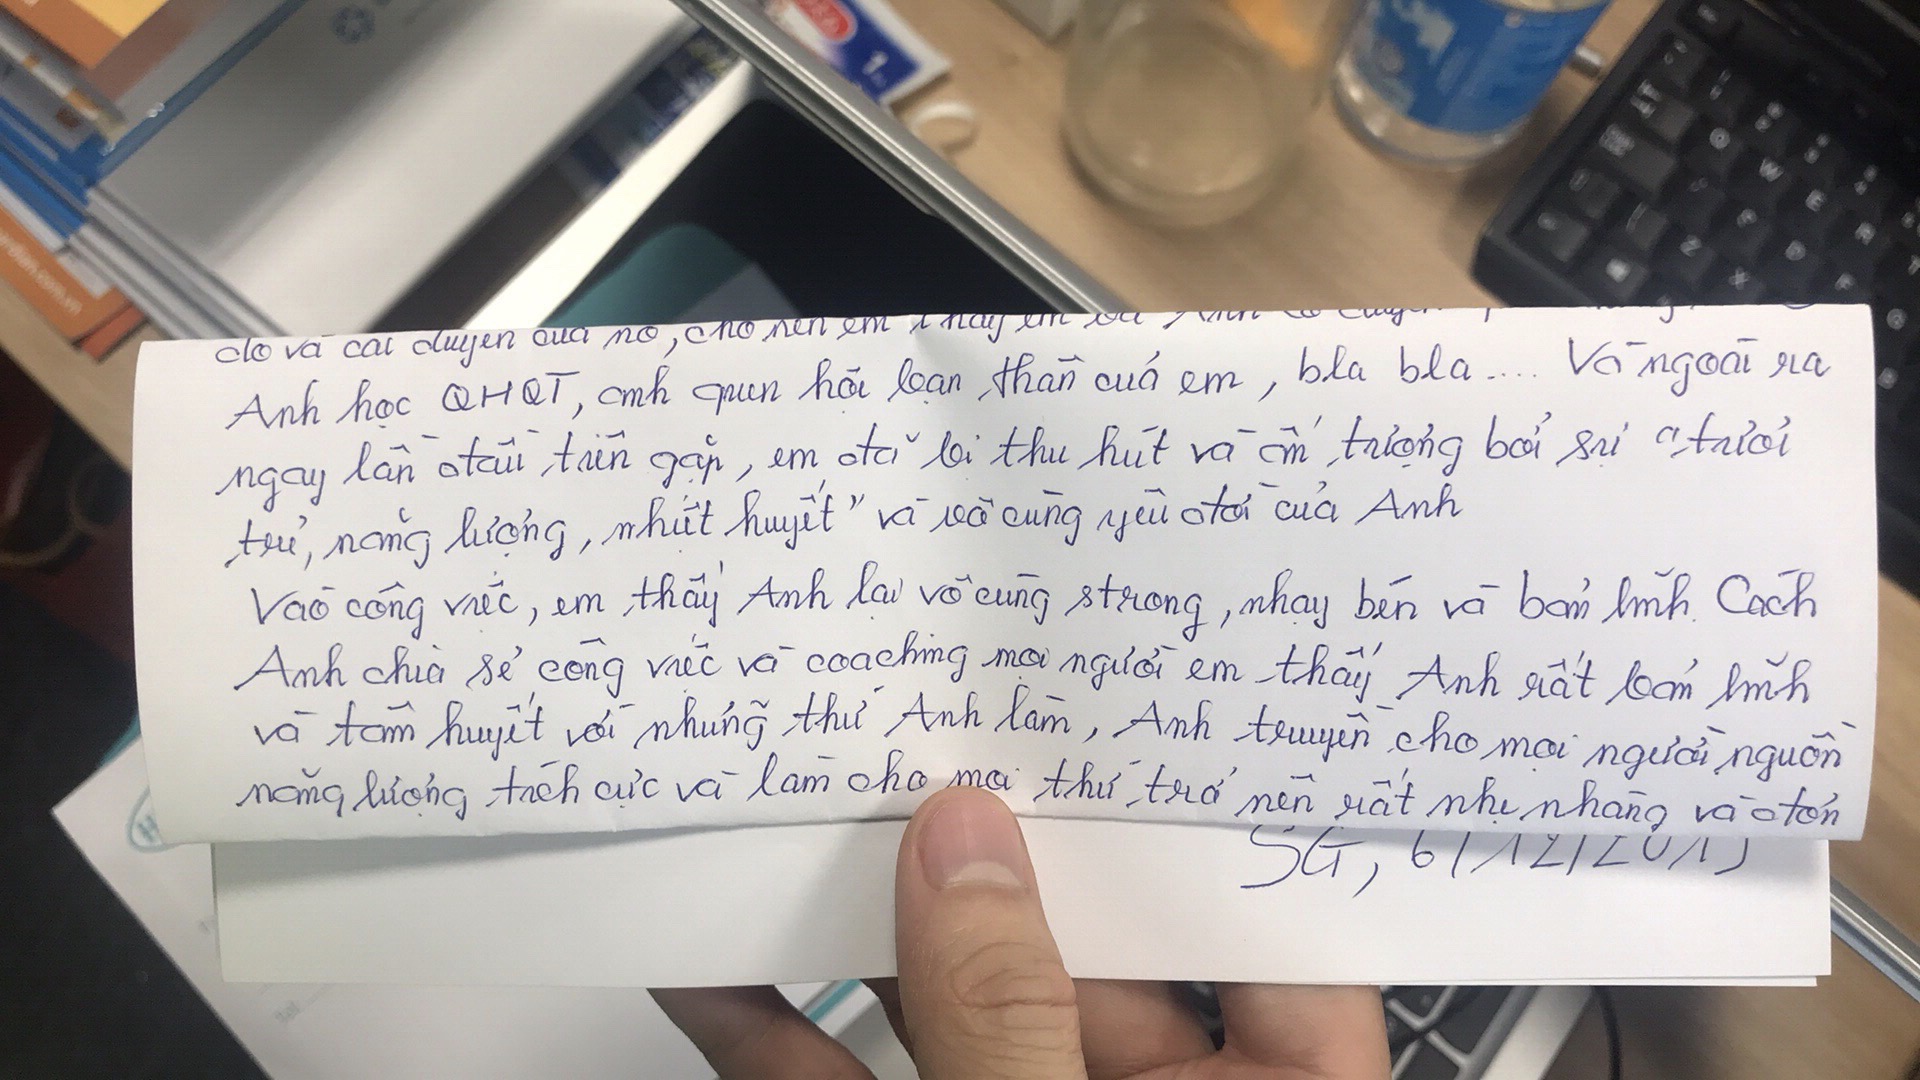 do và cái duyên của nó, cho nên em thấy em và Anh có duyên
Anh học QHQT, anh quen hội loạn thần của em, bla bla.... Và ngoài ra
ngay lần đầu tiên gặp, em đã bị thu hút và ấn tượng bởi sự "tươi
trẻ, năng lượng, nhiệt huyết" và vô cùng yêu đời của Anh
Vào công việc, em thấy Anh lại vô cùng strong, nhạy bén và bản lĩnh. Cách
Anh chia sẻ công việc và coaching mọi người em thấy Anh rất bản lĩnh
và tâm huyết với những thứ Anh làm, Anh truyền cho mọi người nguồn
năng lượng tích cực và làm cho mọi thứ trở nên rất nhẹ nhàng và đơn
SG, 6/12/2019
W
E
R
F
Z
X
D